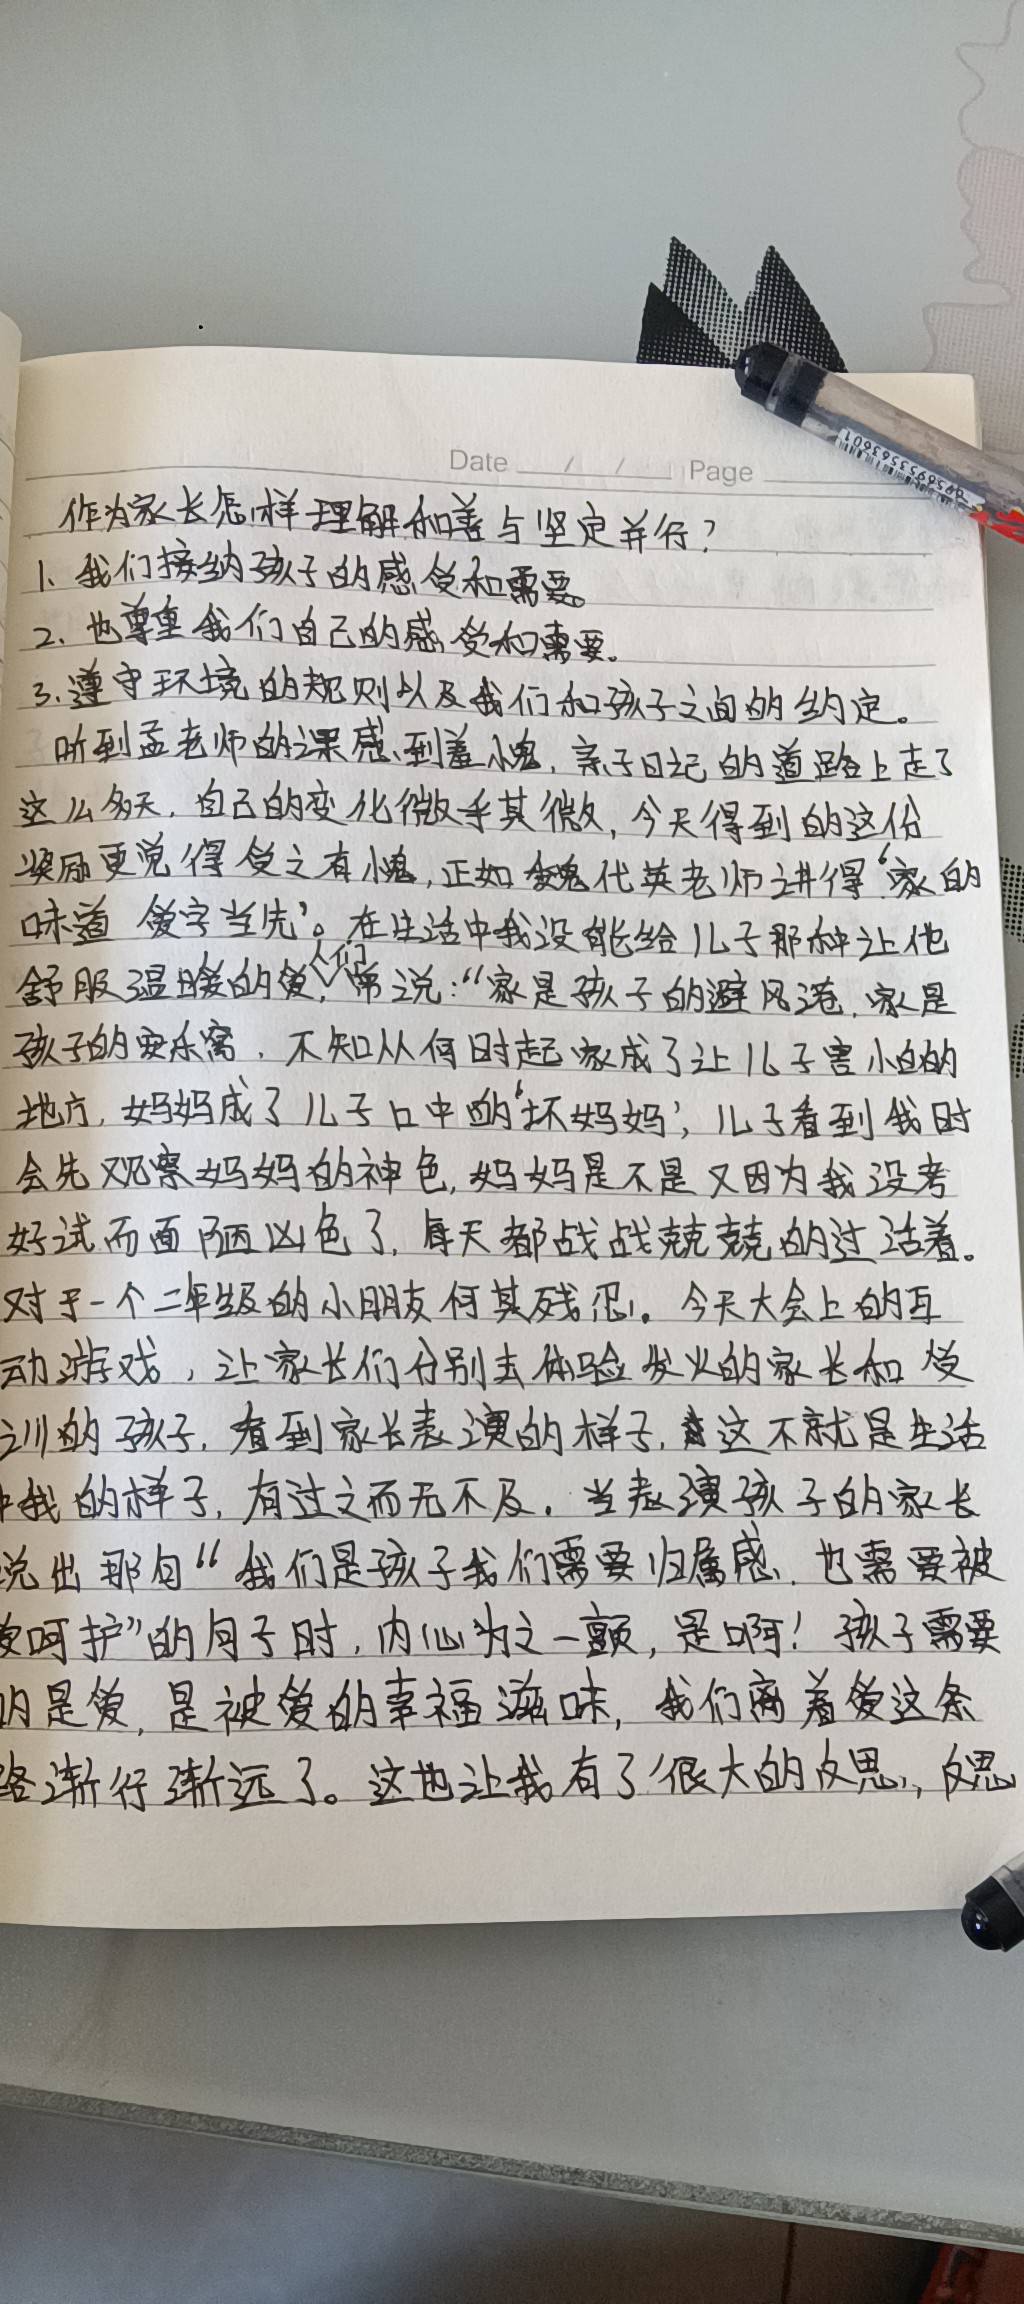 Date / / Page
作为家长怎样理解和善与坚定并行?
1、我们接纳孩子的感受和需要。
2、也尊重我们自己的感受和需要。
3、遵守环境的规则以及我们和孩子之间的约定。
听到孟老师的课感到羞愧，亲子日记的道路上走了
这么多天，自己的变化微乎其微，今天得到的这份
奖励更觉得受之有愧，正如魏代英老师讲得‘家的
味道 爱字当先’。在生活中我没能给儿子那种让他
舒服温暖的爱，人们常说：“家是孩子的避风港，家是
孩子的安乐窝，不知从何时起家成了让儿子害怕的
地方，妈妈成了儿子口中的‘坏妈妈’，儿子看到我时
会先观察妈妈的神色，妈妈是不是又因为我没考
好试而面陋凶色了，每天都战战兢兢的过活着。
对于一个二年级的小朋友何其残忍。今天大会上的互
动游戏，让家长们分别去体验发火的家长和受
训的孩子，看到家长表演的样子，这不就是生活
中我的样子，有过之而无不及。当表演孩子的家长
说出那句“我们是孩子我们需要归属感，也需要被
爱呵护”的句子时，内心为之一颤，是啊！孩子需要
的是爱，是被爱的幸福滋味，我们离着爱这条
路渐行渐远了。这也让我有了很大的反思，反思